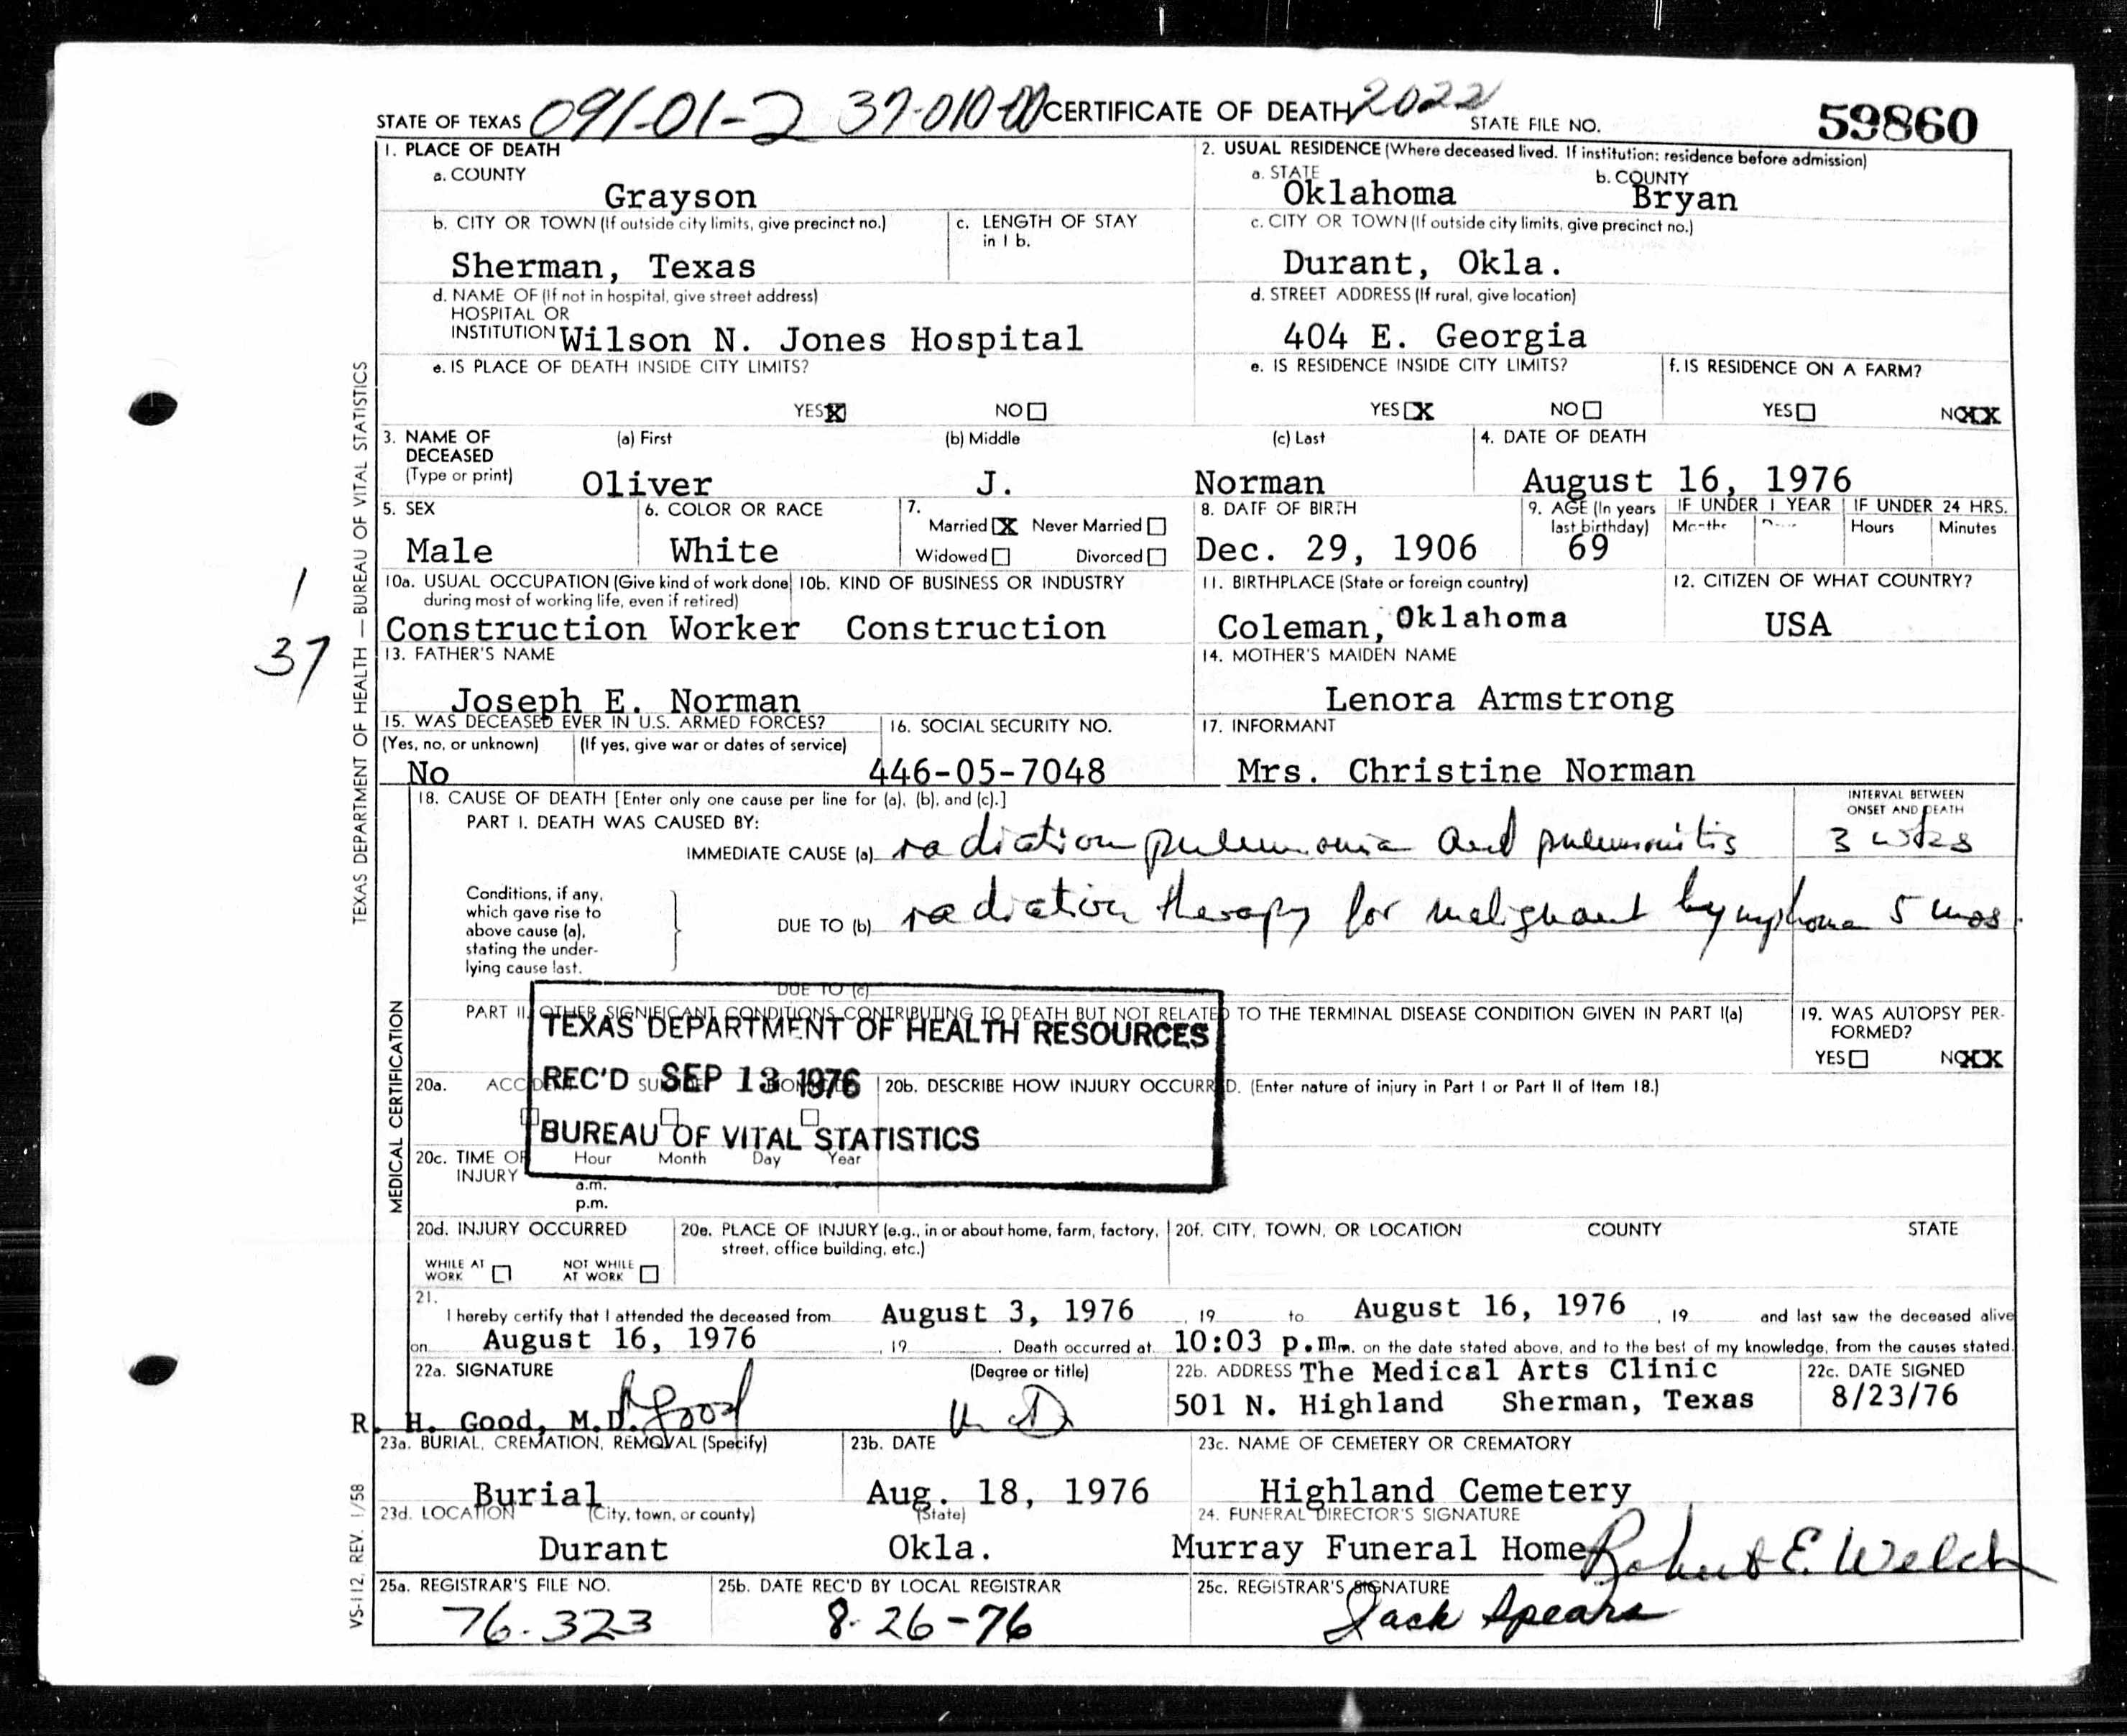 STATE OF TEXAS 091-01-2 37-010-00 CERTIFICATE OF DEATH 2022 STATE FILE NO. 59860
1. PLACE OF DEATH
a. COUNTY
Grayson
2. USUAL RESIDENCE (Where deceased lived. If institution: residence before admission)
a. STATE b. COUNTY
Oklahoma Bryan
b. CITY OR TOWN (If outside city limits, give precinct no.)
Sherman, Texas
c. LENGTH OF STAY
in 1 b.
c. CITY OR TOWN (If outside city limits, give precinct no.)
Durant, Okla.
d. NAME OF (If not in hospital, give street address)
HOSPITAL OR
INSTITUTION Wilson N. Jones Hospital
d. STREET ADDRESS (If rural, give location)
404 E. Georgia
e. IS PLACE OF DEATH INSIDE CITY LIMITS?
YES X NO
e. IS RESIDENCE INSIDE CITY LIMITS?
YES X NO
f. IS RESIDENCE ON A FARM?
YES NO XX
3. NAME OF
DECEASED
(Type or print)
(a) First (b) Middle (c) Last
Oliver J. Norman
4. DATE OF DEATH
August 16, 1976
5. SEX
Male
6. COLOR OR RACE
White
7.
Married X Never Married
Widowed Divorced
8. DATE OF BIRTH
Dec. 29, 1906
9. AGE (In years
last birthday)
69
IF UNDER 1 YEAR
IF UNDER 24 HRS.
Hours Minutes
10a. USUAL OCCUPATION (Give kind of work done
during most of working life, even if retired)
Construction Worker
10b. KIND OF BUSINESS OR INDUSTRY
Construction
11. BIRTHPLACE (State or foreign country)
Coleman, Oklahoma
12. CITIZEN OF WHAT COUNTRY?
USA
13. FATHER'S NAME
Joseph E. Norman
14. MOTHER'S MAIDEN NAME
Lenora Armstrong
15. WAS DECEASED EVER IN U.S. ARMED FORCES?
(Yes, no, or unknown) (If yes, give war or dates of service)
No
16. SOCIAL SECURITY NO.
446-05-7048
17. INFORMANT
Mrs. Christine Norman
18. CAUSE OF DEATH [Enter only one cause per line for (a), (b), and (c).]
PART I. DEATH WAS CAUSED BY:
INTERVAL BETWEEN
ONSET AND DEATH
IMMEDIATE CAUSE (a) radiation pneumonia and pneumonitis 3 wks
Conditions, if any,
which gave rise to
above cause (a),
stating the under-
lying cause last.
DUE TO (b) radiation therapy for malignant lymphoma 5 mos.
DUE TO (c)
PART II. OTHER SIGNIFICANT CONDITIONS CONTRIBUTING TO DEATH BUT NOT RELATED TO THE TERMINAL DISEASE CONDITION GIVEN IN PART I(a)
19. WAS AUTOPSY PER-
FORMED?
YES NO XX
TEXAS DEPARTMENT OF HEALTH RESOURCES
REC'D SEP 13 1976
BUREAU OF VITAL STATISTICS
20a.
20b. DESCRIBE HOW INJURY OCCURRED. (Enter nature of injury in Part I or Part II of Item 18.)
20c. TIME OF
INJURY
Hour Month Day Year
a.m.
p.m.
20d. INJURY OCCURRED
WHILE AT
WORK
NOT WHILE
AT WORK
20e. PLACE OF INJURY (e.g., in or about home, farm, factory,
street, office building, etc.)
20f. CITY, TOWN, OR LOCATION COUNTY STATE
21.
I hereby certify that I attended the deceased from August 3, 1976, 19 to August 16, 1976, 19 and last saw the deceased alive
on August 16, 1976, 19 . Death occurred at 10:03 p.m.m. on the date stated above, and to the best of my knowledge, from the causes stated.
22a. SIGNATURE (Degree or title)
R. H. Good, M.D. R Good M D
22b. ADDRESS The Medical Arts Clinic
501 N. Highland Sherman, Texas
22c. DATE SIGNED
8/23/76
23a. BURIAL, CREMATION, REMOVAL (Specify)
Burial
23b. DATE
Aug. 18, 1976
23c. NAME OF CEMETERY OR CREMATORY
Highland Cemetery
23d. LOCATION (City, town, or county) (State)
Durant Okla.
24. FUNERAL DIRECTOR'S SIGNATURE
Murray Funeral Home Robert E. Welch
25a. REGISTRAR'S FILE NO.
76-323
25b. DATE REC'D BY LOCAL REGISTRAR
8-26-76
25c. REGISTRAR'S SIGNATURE
Jack Spears
TEXAS DEPARTMENT OF HEALTH — BUREAU OF VITAL STATISTICS
MEDICAL CERTIFICATION
VS-112, REV. 1/58
1
37